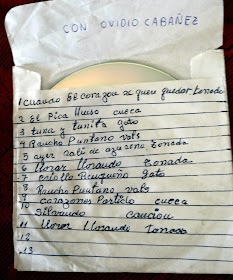 CON OVIDIO CABAÑEZ
1 Cuando El Corazon se quiere quedar tonada
2 El Pica Hueso cueca
3 tuna y tunita gato
4 Rancho Puntano vals
5 ayer salí de azureno tonada
6 llorar llorando tonada
7 criollo Renqueño gato
8 Rancho Puntano vals
9 corazones Partido cueca
10 Silvando cancion
11 llorar llorando tonada
12
13